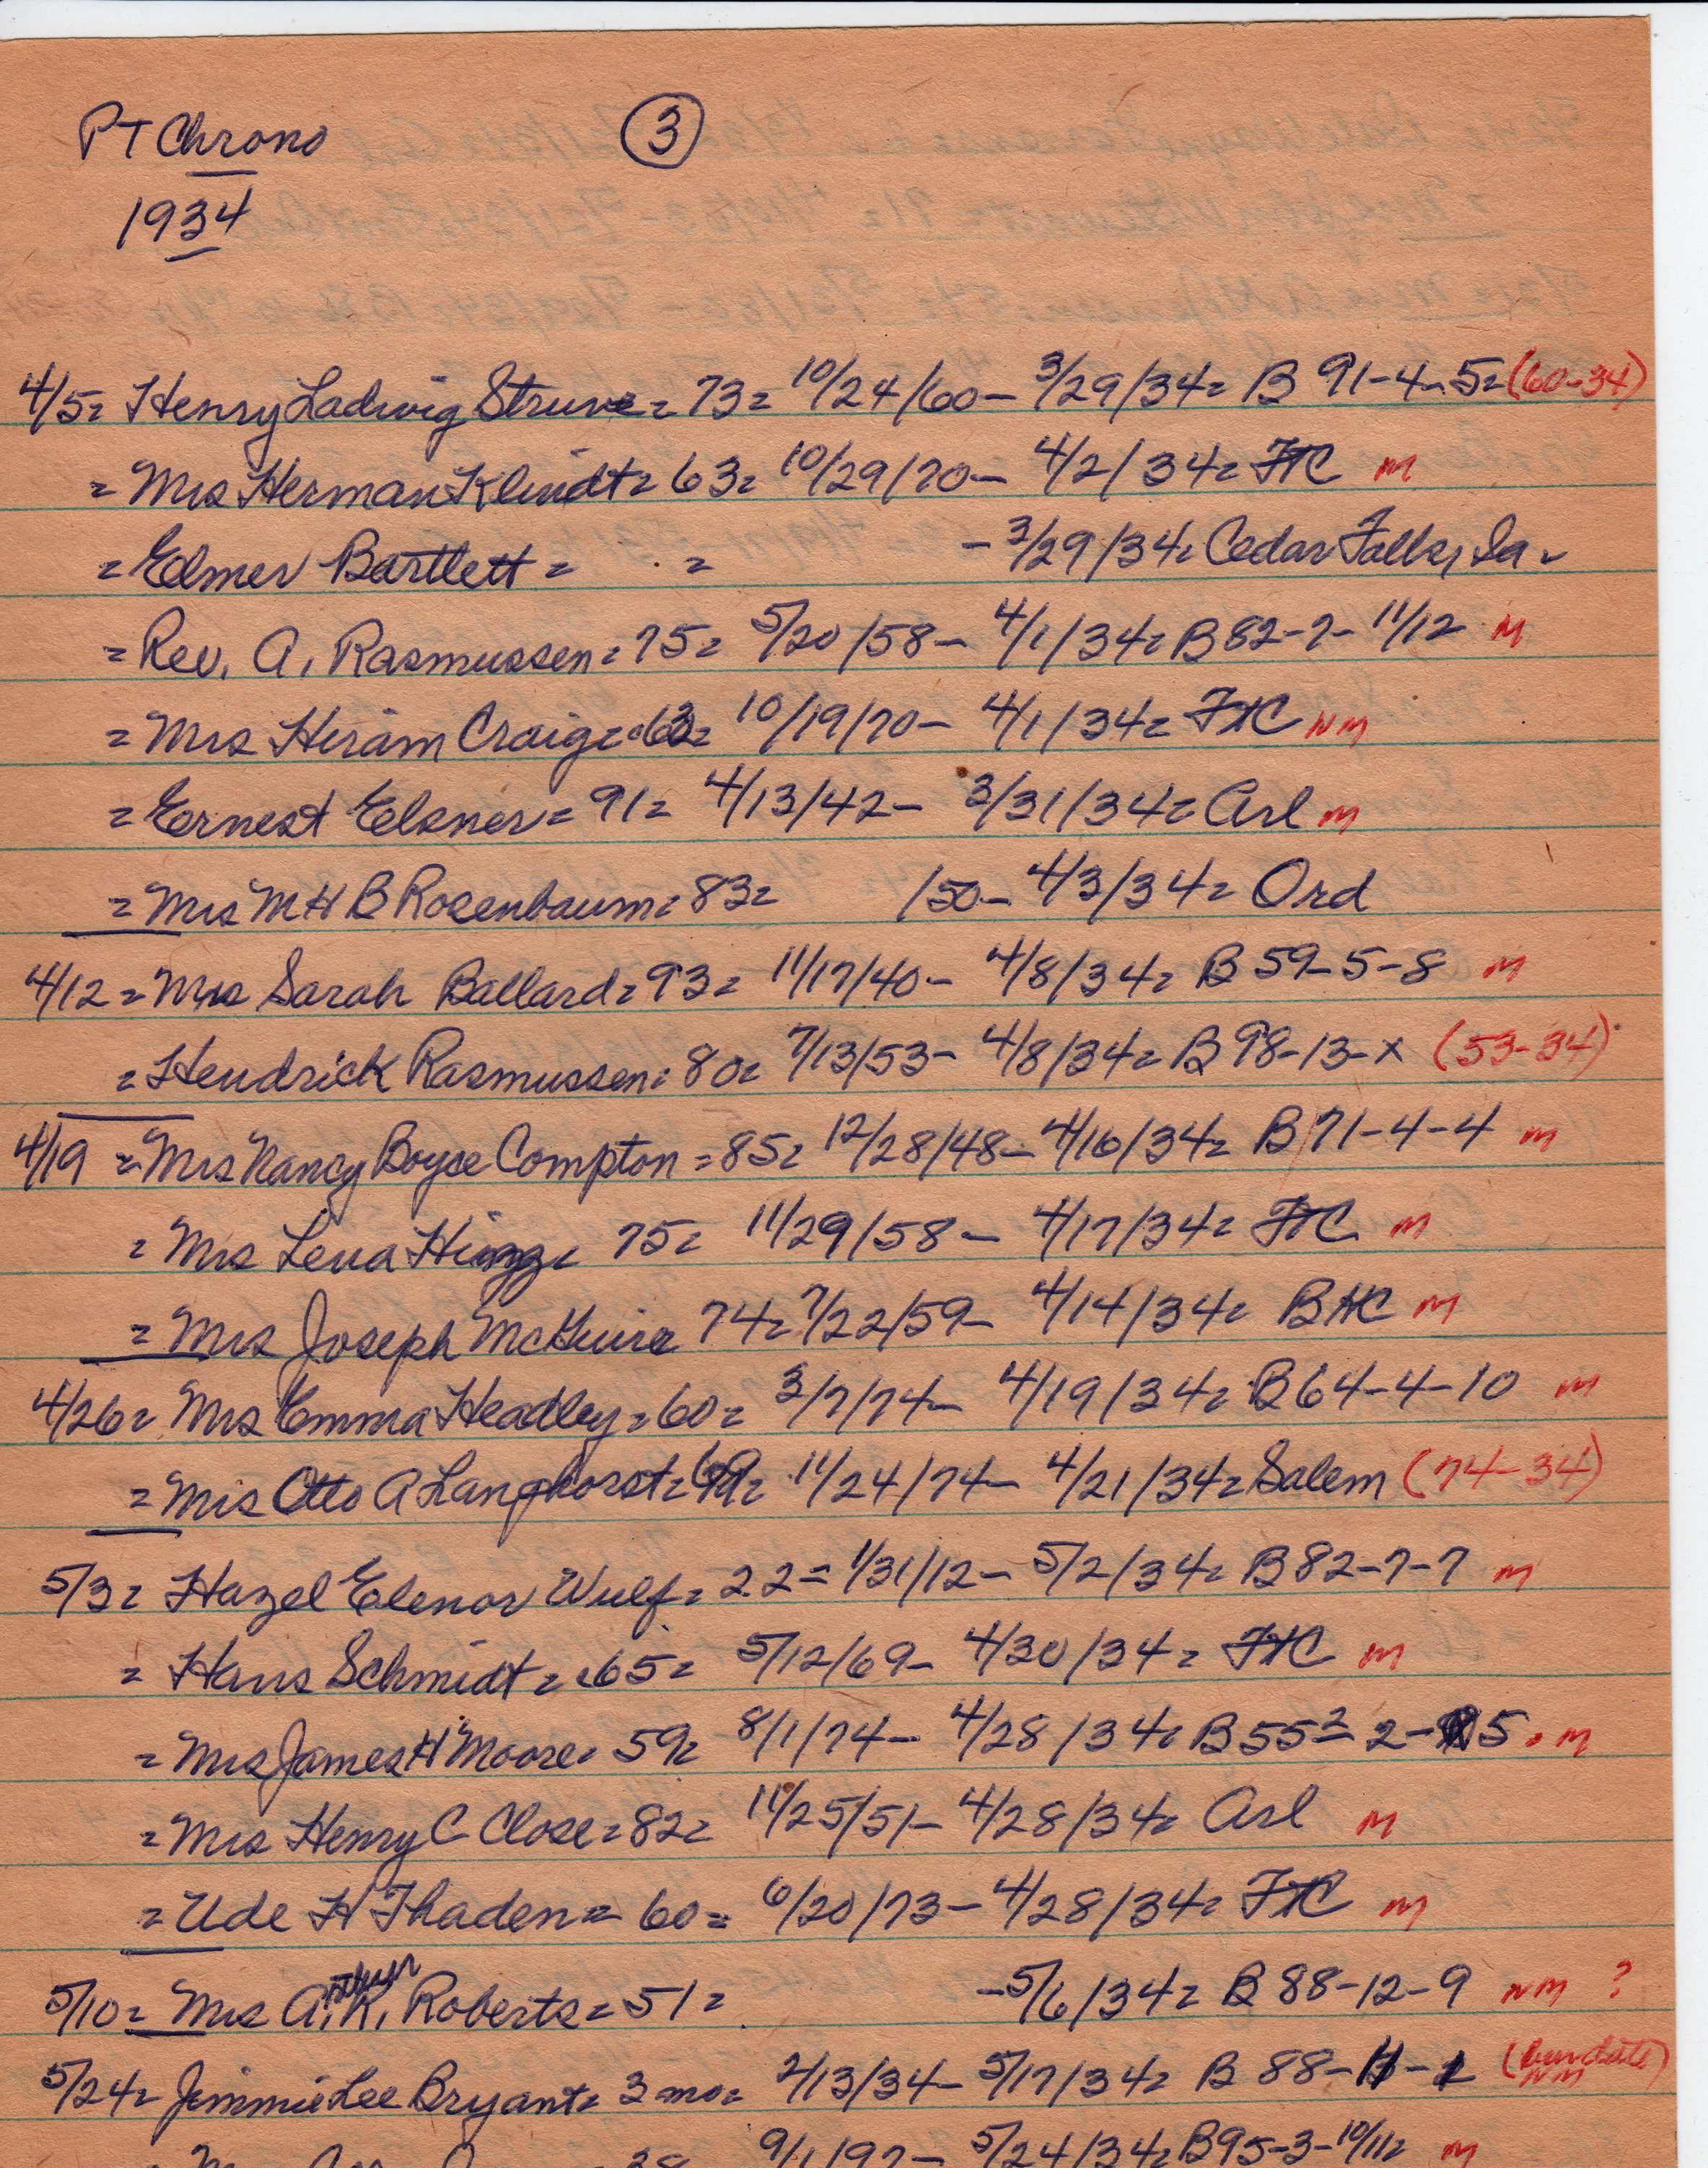 PT Chrono 3
1934
4/5= Henry Ladwig Struve= 73= 10/24/60- 3/29/34= B 91-4-5= (60-34)
= Mrs Herman Klindt= 63= 10/29/70- 4/2/34= FHC M
= Elmer Bartlett= = - 3/29/34= Cedar Falls, Ia =
= Rev. A. Rasmussen= 75= 5/20/58- 4/1/34= B 82-7-11/12 M
= Mrs Hiram Craig= 63= 10/19/70- 4/1/34= FHC NM
= Ernest Elsner= 91= 4/13/42- 3/31/34= Arl M
= Mrs M H B Rosenbaum= 83= /50- 4/3/34= Ord
4/12= Mrs Sarah Ballard= 93= 11/17/40- 4/8/34= B 59-5-8 M
= Hendrick Rasmussen= 80= 7/13/53- 4/8/34= B 98-13-x (53-34)
4/19 = Mrs Nancy Boyce Compton= 85= 12/28/48- 4/16/34= B 71-4-4 M
= Mrs Lena 75= 11/29/58- 4/17/34= FHC M
= Mrs Joseph McGuire 74= 7/22/59- 4/14/34= BHC M
4/26= Mrs Emma Headley= 60= 3/7/74- 4/19/34= B 64-4-10 M
= Mrs Otto A Langhorst= 11/24/74- 4/21/34= Salem (74-34)
5/3= Hazel Elenor Wulf= 22= 1/31/12- 5/2/34= B 82-7-7 M
= Hans Schmidt= 65= 5/12/69- 4/30/34= FHC M
= Mrs James H Moore= 59= 8/1/74- 4/28/34= B 55= 2-5 M
= Mrs Henry C Close= 82= 11/25/51- 4/28/34= Arl M
= Ude H Thaden= 60= 6/20/73- 4/28/34= FHC M
5/10= Mrs A. R. Roberts= 51= - 5/6/34= B 88-12-9 NM ?
5/24= Jimmie Lee Bryant= 3 mo= 2/13/34- 5/17/34= B 88- NM
9/1/97- 5/24/34= B 95-3-10/11= M